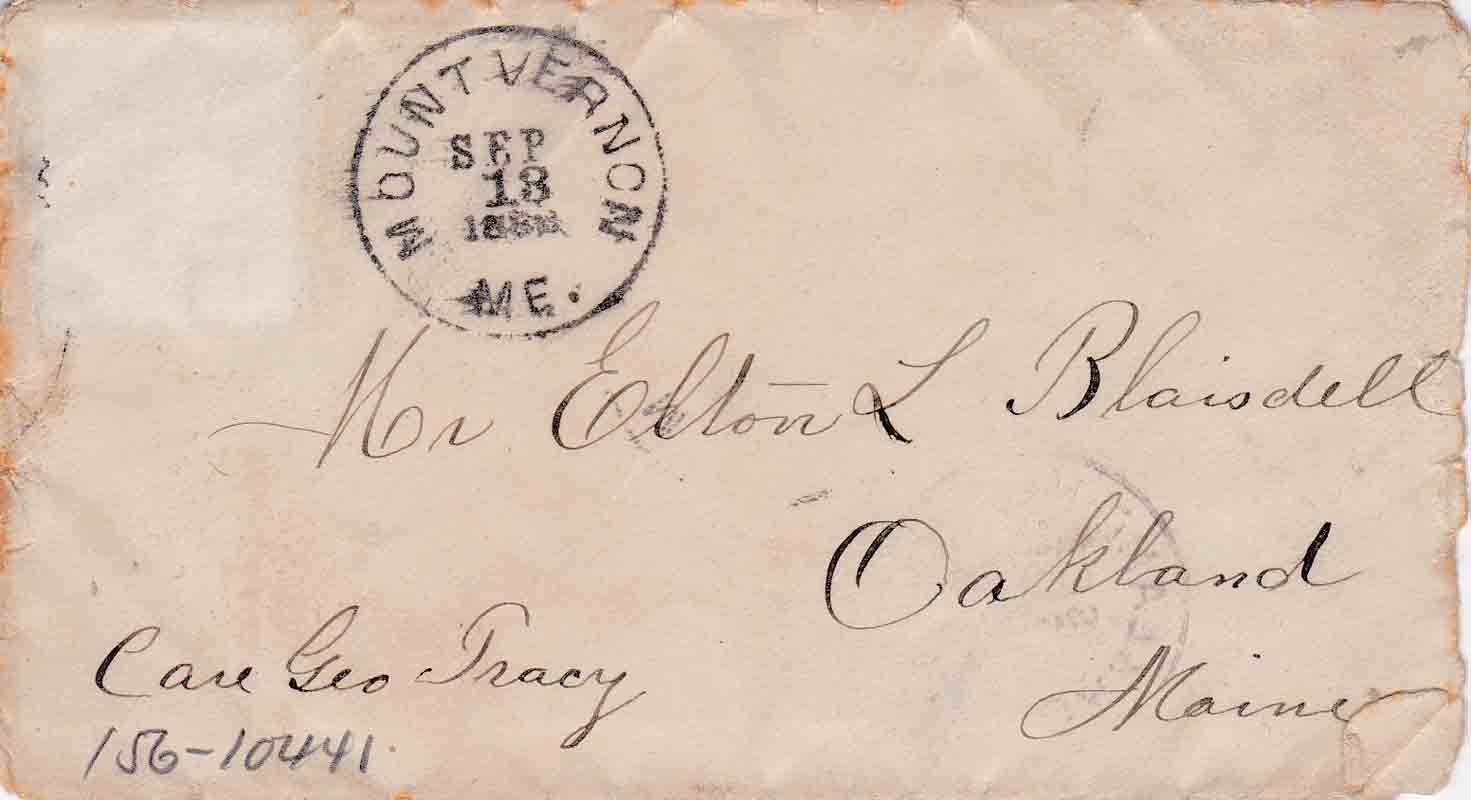 MOUNT VERNON
SEP
18
ME.
Mr Elton L Blaisdell
Oakland
Maine
Care Geo Tracy
156-10441